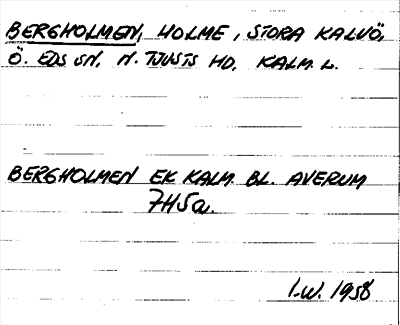 BERGHOLMEN, HOLME, STORA KALVÖ,
Ö. EDS SN. N. TJUSTS HD. KALM. L.
BERGHOLMEN EK KALM. BL. AVERUM
7H5a.
I.W. 1958